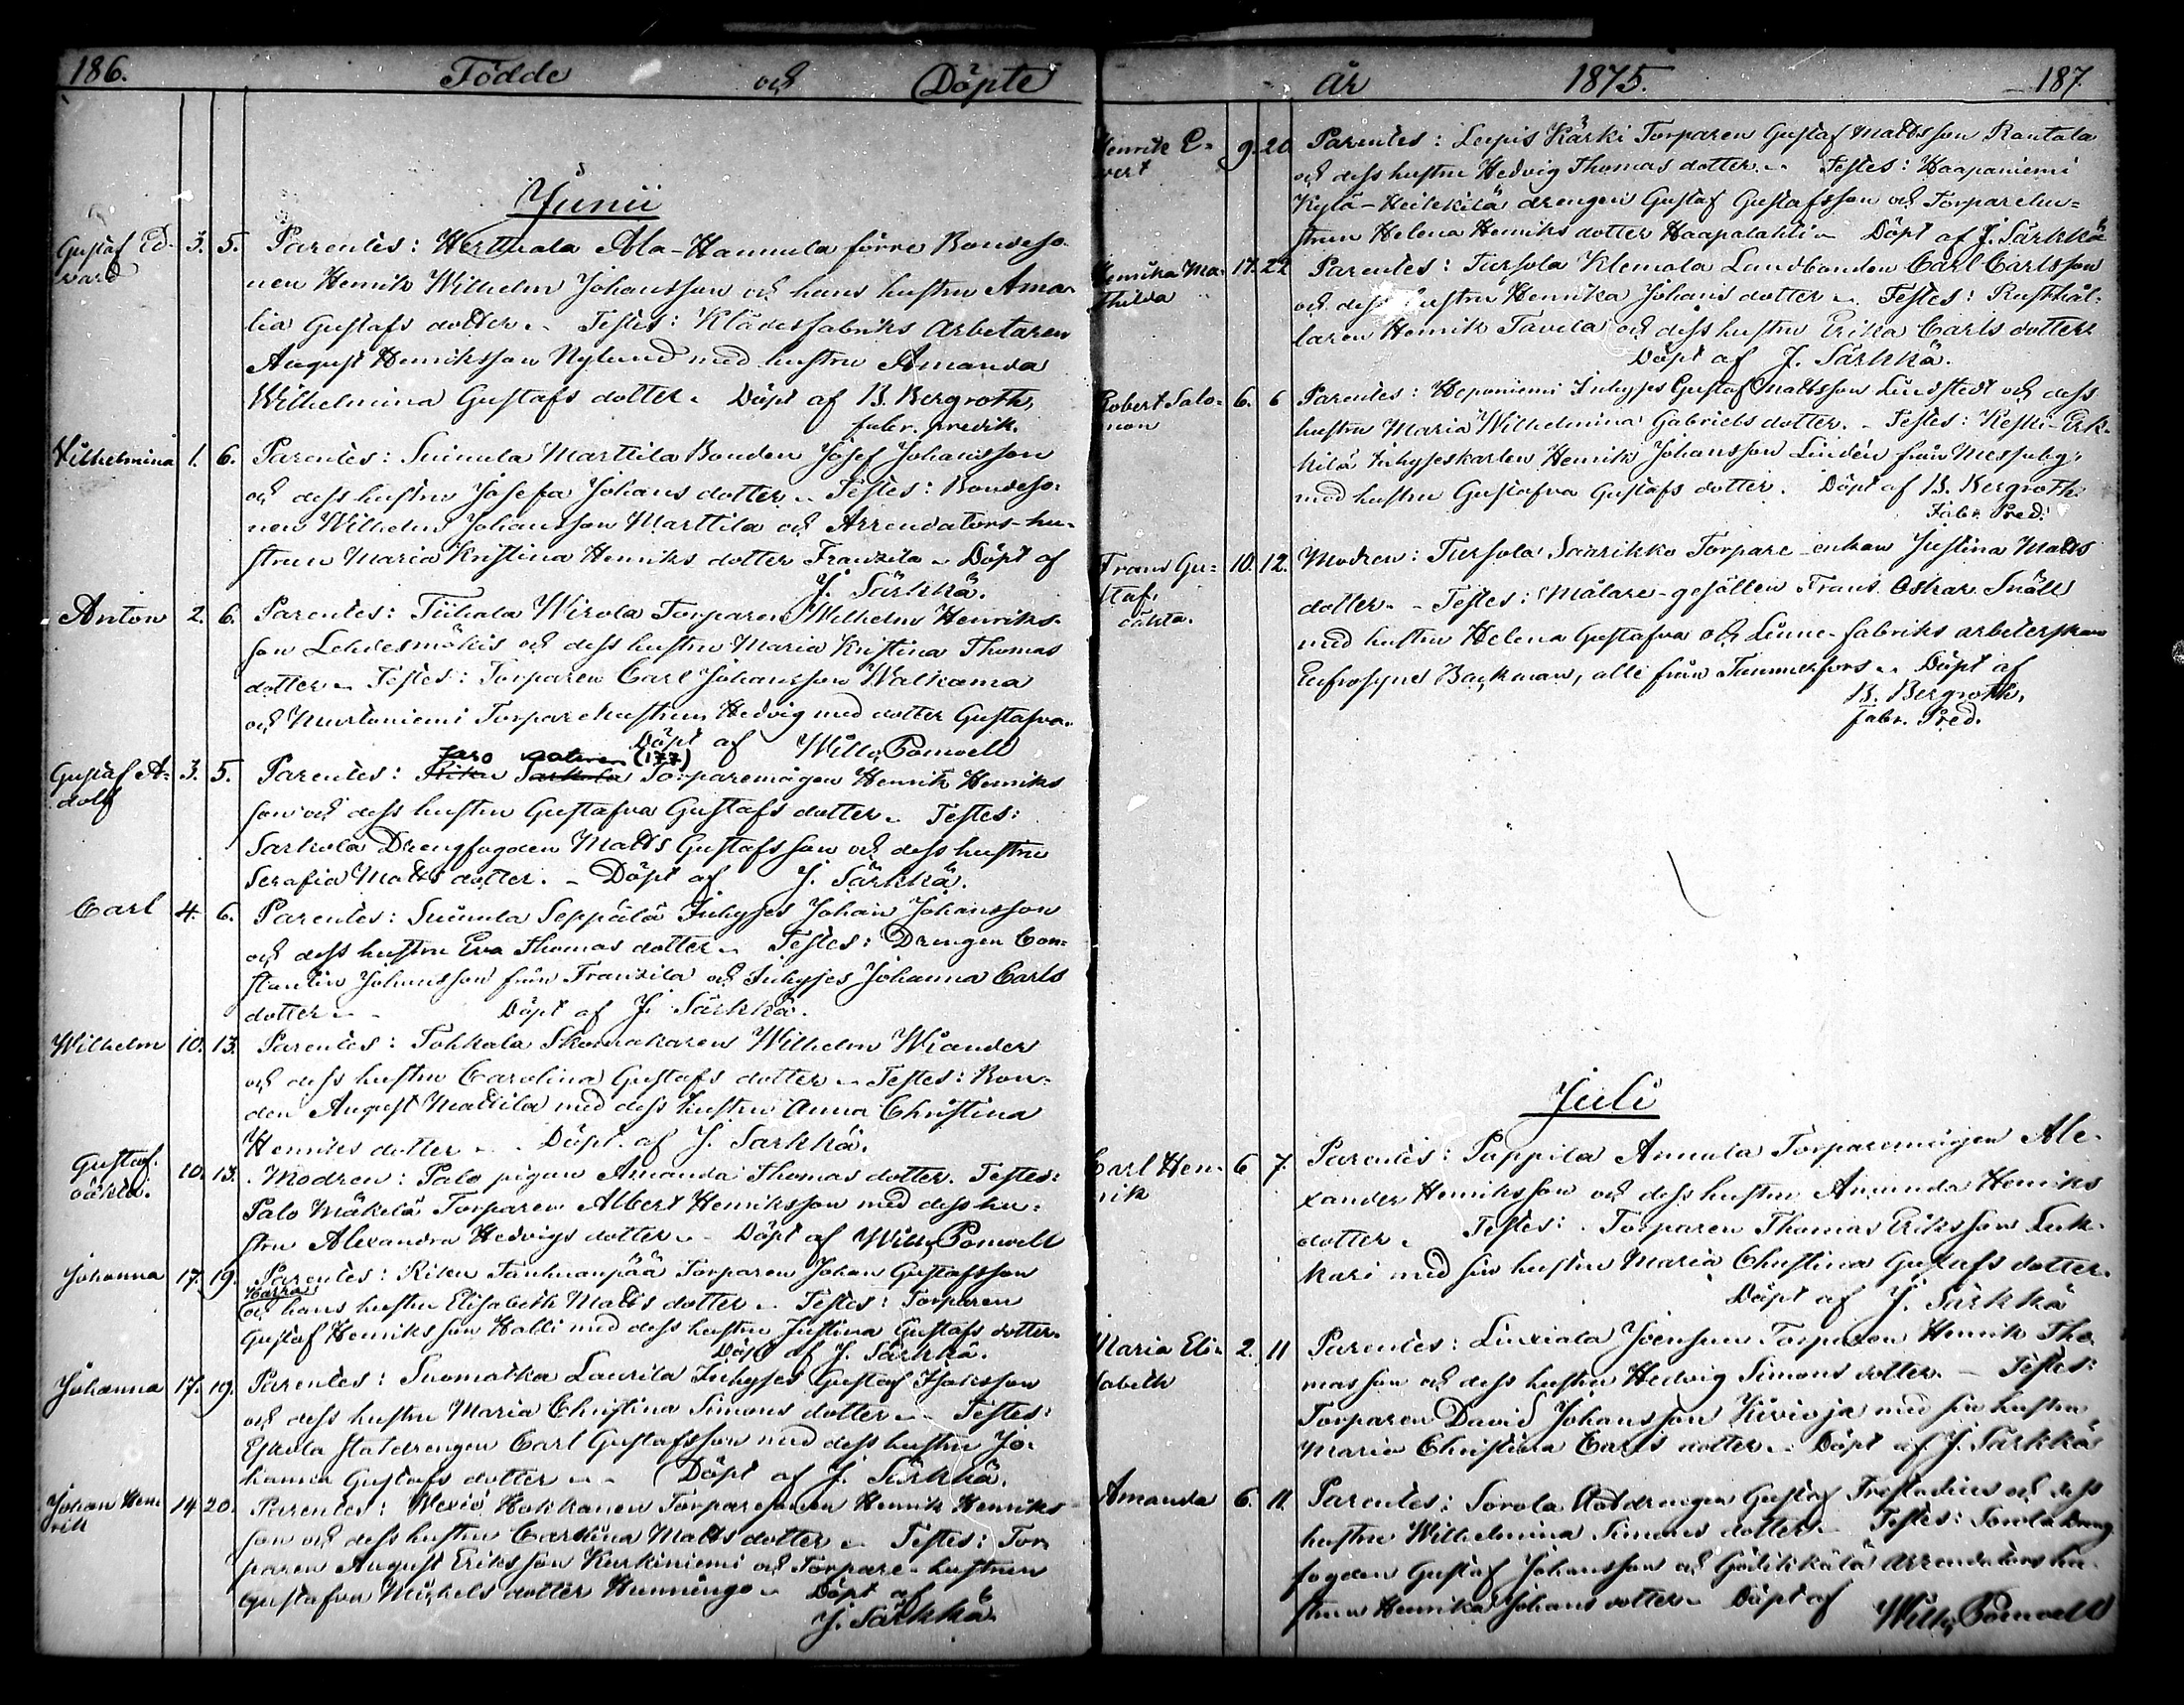 186. Födde och Döpte
Junii
Gustaf Ed- 3. 5. Parentes: Herttuala Ala-Hannula förre Bondeso-
vard nen Henrik Wilhelm Johansson och hans hustru Ama-
lia Gustafs dotter. Testes: Klädesfabriks arbetaren
August Henriksson Nylund med hustru Amanda
Wilhelmina Gustafs dotter. Döpt af B. Bergroth,
fabr. predik.
Wilhelmina 1. 6. Parentes: Suinula Marttila Bonden Josef Johansson
och dess hustru Josefa Johans dotter. Testes: Bondeso-
nen Wilhelm Johansson Marttila och Arrendators-hu-
strun Maria Kristina Henriks dotter Franzila. Döpt af
J. Särkkä.
Anton 2. 6. Parentes: Tiihala Wirola Torparen Wilhelm Henriks-
son Lehdesmökis och dess hustru Maria Kristina Thomas
dotter. Testes: Torparen Carl Johansson Walkama
och Mustoniemi Torparehustrun Hedvig med dotter Gustafva.
Döpt af Wilh. Pomoell
Jaro (177)
Gustaf A- 3. 5. Parentes: Riku Sarkola Torparemågen Henrik Henriks
dolf son och dess hustru Gustafva Gustafs dotter. Testes:
Sarkola Drengfogden Matts Gustafsson och dess hustru
Serafia Matts dotter. Döpt af J. Särkkä.
Carl 4. 6. Parentes: Suinula Seppälä Inhyses Johan Johansson
och dess hustru Eva Thomas dotter. Testes: Drengen Con-
stantin Johansson från Franzila och Inhyses Johanna Carls
dotter. Döpt af J. Särkkä.
Wilhelm 10. 13. Parentes: Tohkala Skomakaren Wilhelm Wiander
och dess hustru Carolina Gustafs dotter. Testes: Bon-
den August Mattila med dess hustru Anna Christina
Henriks dotter. Döpt af J. Särkkä.
Gustaf. 10. 13. Modren: Palo pigan Amanda Thomas dotter. Testes:
oäkta. Palo Mäkelä Torparen Albert Henriksson med dess hu-
stru Alexandra Hedvigs dotter. Döpt af Wilh. Pomoell
Johanna 17. 19. Parentes: Riku Tanhuanpää Torparen Johan Gustafsson
Harra
och hans hustru Elisabeth Matts dotter. Testes: Torparen
Gustaf Henriksson Halli med dess hustru Justina Gustafs dotter.
Döpt af J. Särkkä.
Johanna 17. 19. Parentes: Suomatka Laurila Inhyses Gustaf Isaksson
och dess hustru Maria Christina Simons dotter. Testes:
Eskola statdrengen Carl Gustafsson med dess hustru Jo-
hanna Gustafs dotter. Döpt af J. Särkkä.
Johan Hen- 14 20. Parentes: Wexiö Hokkanen Torparesonen Henrik Henriks
rik son och dess hustru Carolina Matts dotter. Testes: Tor-
paren August Eriksson Kurkiniemi och Torpare-hustrun
Gustafva Mickels dotter Hunninge. Döpt af
J. Särkkä.
år 1875. 187.
Henrik E- 9. 20 Parentes: Lepis Kärki Torparen Gustaf Mattsson Rantala
vert och dess hustru Hedvig Thomas dotter. Testes: Haapaniemi
Kylä-Heikkilä drengen Gustaf Gustafsson och Torparehu-
strun Helena Henriks dotter Haapalahti. Döpt af J. Särkkä
Henrika Ma- 17. 22 Parentes: Tursola Klemola Landbonden Carl Carlsson
thilda och dess hustru Henrika Johans dotter. Testes: Rusthål-
laren Henrik Tavela och dess hustru Erika Carls dotter
Döpt af J. Särkkä.
Robert Salo- 6. 6 Parentes: Heponiemi Inhyses Gustaf Mattsson Lindstedt och dess
mon hustru Maria Wilhelmina Gabriels dotter. Testes: Keski-Erk-
kilä Inhyseskarlen Henrik Johansson Lindén från Messuby,
med hustru Gustafva Gustafs dotter. Döpt af B. Bergroth
Fabr. Pred.
Frans Gu- 10. 12. Modren: Tursola Saarikko Torpare-enkan Justina Matts
staf. dotter. Testes: Målare-gesällen Frans Oskar Snäll
oäkta. med hustru Helena Gustafva och Linne-fabriks arbeterskan
Eufrosyne Backman, alle från Tammerfors. Döpt af
B. Bergroth,
fabr. Pred.
Juli
Carl Hen- 6 7. Parentes: Pappila Annula Torparemågen Ale-
rik xander Henriksson och dess hustru Amanda Henriks
dotter. Testes: Torparen Thomas Eriksson Luk-
kari med sin hustru Maria Christina Gustafs dotter.
Döpt af J. Särkkä
Maria Eli- 2. 11 Parentes: Liuxiala Joensuu Torparen Henrik Tho-
sabeth masson och dess hustru Hedvig Simons dotter. Testes:
Torparen David Johansson Kivioja med sin hustru
Maria Christina Carls dotter. Döpt af J. Särkkä
Amanda 6. 11. Parentes: Sorola Statdrengen Gustaf Frestadius och dess
hustru Wilhelmina Simons dotter. Testes: Sorola Dreng
fogden Gustaf Johansson och Arrendators hu-
strun Henrika Johans dotter. Döpt af
Wilh. Pomoell